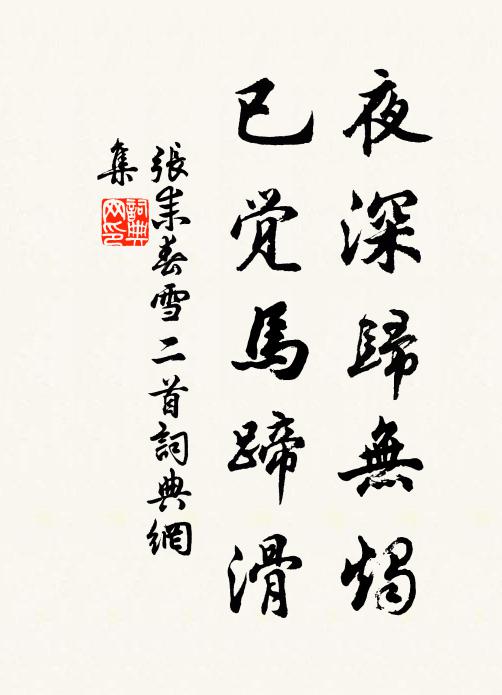 夜深歸無燭
已觉馬蹄滑
張耒春雪二首詞典網
集
詞典
网印